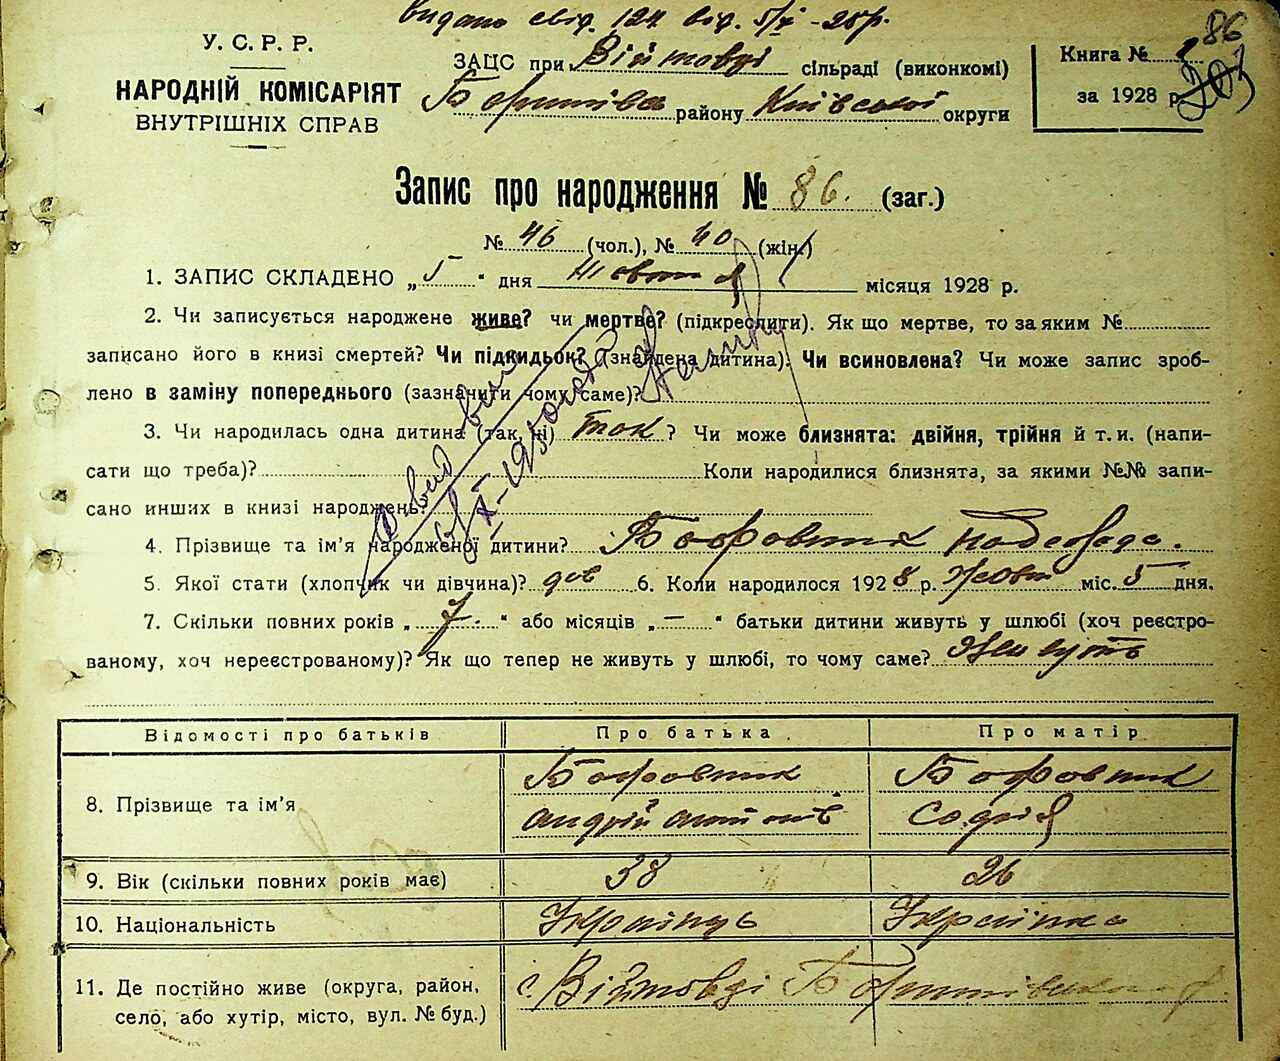 видано свід. 124 від. 5/X - 28 р.
86
У. С. Р. Р.
НАРОДНІЙ КОМІСАРІЯТ
ВНУТРІШНІХ СПРАВ
ЗАЦС при Війтовці сільраді (виконкомі)
району Київської округи
Книга №
за 1928 р.
Запис про народження № 86. (заг.)
№ 46 (чол.), № 40 (жін.)
1. ЗАПИС СКЛАДЕНО „5“ дня Жовтня місяця 1928 р.
2. Чи записується народжене живе? чи мертве? (підкреслити). Як що мертве, то за яким №
записано його в книзі смертей? Чи підкидьок? (знайдена дитина). Чи всиновлена? Чи може запис зроб-
лено в заміну попереднього (зазначити чому саме)?
3. Чи народилась одна дитина (так, ні) так? Чи може близнята: двійня, трійня й т. и. (напи-
сати що треба)? Коли народилися близнята, за якими №№ запи-
сано инших в книзі народжень?
4. Прізвище та ім'я народженої дитини? Боровик
5. Якої стати (хлопчик чи дівчина)? дів 6. Коли народилося 1928 р. Жовт міс. 5 дня.
7. Скільки повних років „7“ або місяців „—“ батьки дитини живуть у шлюбі (хоч реєстро-
ваному, хоч нереєстрованому)? Як що тепер не живуть у шлюбі, то чому саме? Живуть
Відомості про батьків Про батька Про матір
8. Прізвище та ім'я Боровик Боровик
Андрій Антонів Софія
9. Вік (скільки повних років має) 38 26
10. Національність Українць Українка
11. Де постійно живе (округа, район,
село, або хутір, місто, вул. № буд.) с. Війтовці